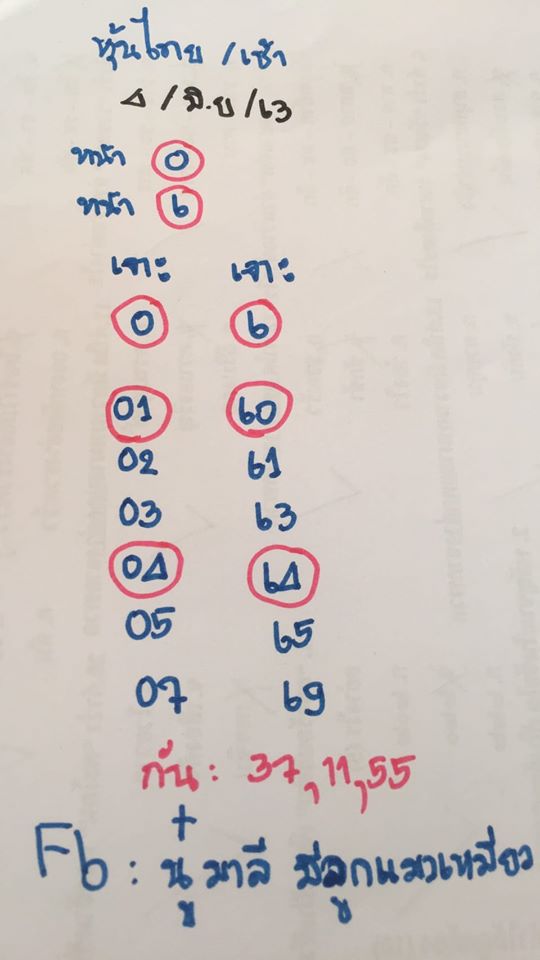 หุ้นไทย /เช้า
4 / มิ.ย /63
หน้า 0
หน้า 6
เจาะ เจาะ
0 6
01 60
02 61
03 63
04 64
05 65
07 69
กัน: 37,11,55
+
Fb: นู๋ มาลี มีลูกแมวเหมียว